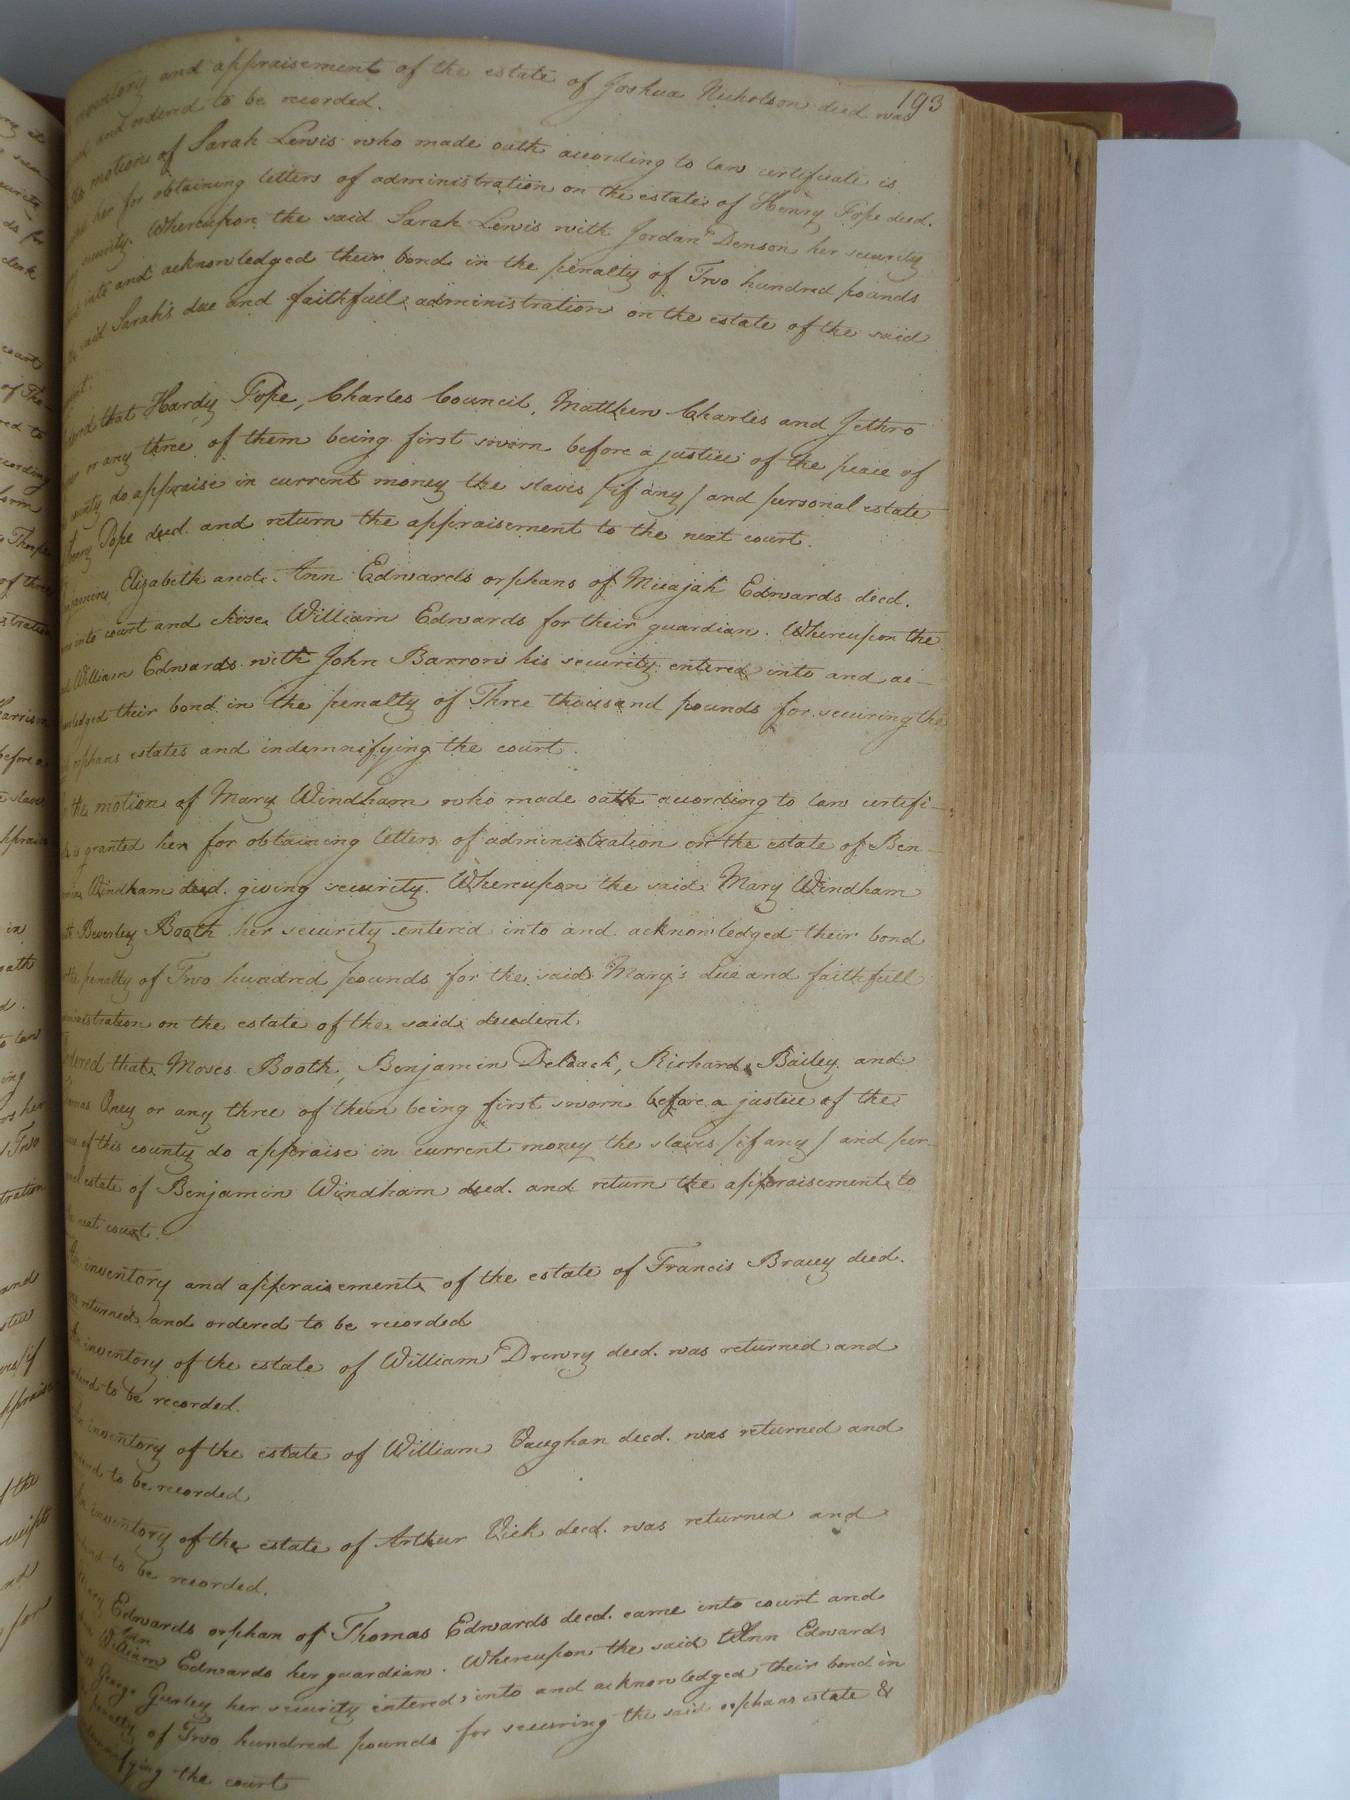 193
inventory and appraisement of the estate of Joshua Nicholson deed was
and ordered to be recorded.
motion of Sarah Lewis who made oath according to law certificate is
her for obtaining letters of administration on the estate of Henry Pope deed.
security. Whereupon the said Sarah Lewis with Jordan Denson her security
into and acknowledged their bond in the penalty of Two hundred pounds
said Sarah's due and faithfull administration on the estate of the said
that Hardy Pope, Charles Council, Matthew Charles and Jethro
or any three of them being first sworn before a justice of the peace of
county do appraise in current money the slaves /if any/ and personal estate
Henry Pope deed. and return the appraisement to the next court.
Elizabeth and Ann Edwards orphans of Micajah Edwards deed.
into court and chose William Edwards for their guardian. Whereupon the
William Edwards with John Barrow his security entered into and ac-
ledged their bond in the penalty of Three thousand pounds for securing the
orphans estates and indemnifying the court.
the motion of Mary Windham who made oath according to law certifi-
is granted her for obtaining letters of administration on the estate of Ben-
Windham deed. giving security. Whereupon the said Mary Windham
Beverley Booth her security entered into and acknowledged their bond
the penalty of Two hundred pounds for the said Mary's due and faithfull
ministration on the estate of the said decedent.
dered that Moses Booth, Benjamin Deloach, Richard Bailey and
Oney or any three of them being first sworn before a justice of the
of this county do appraise in current money the slaves /if any/ and per-
estate of Benjamin Windham deed. and return the appraisement to
next court.
An inventory and appraisement of the estate of Francis Bracey deed.
returned and ordered to be recorded
An inventory of the estate of William Drewry deed. was returned and
to be recorded.
An inventory of the estate of William Vaughan deed. was returned and
to be recorded
An inventory of the estate of Arthur Vick deed. was returned and
to be recorded.
Edwards orphan of Thomas Edwards deed. came into court and
Ann
William Edwards her guardian. Whereupon the said Ann Edwards
George Gurley her security entered into and acknowledged their bond in
penalty of Two hundred pounds for securing the said orphans estate &
fying the court